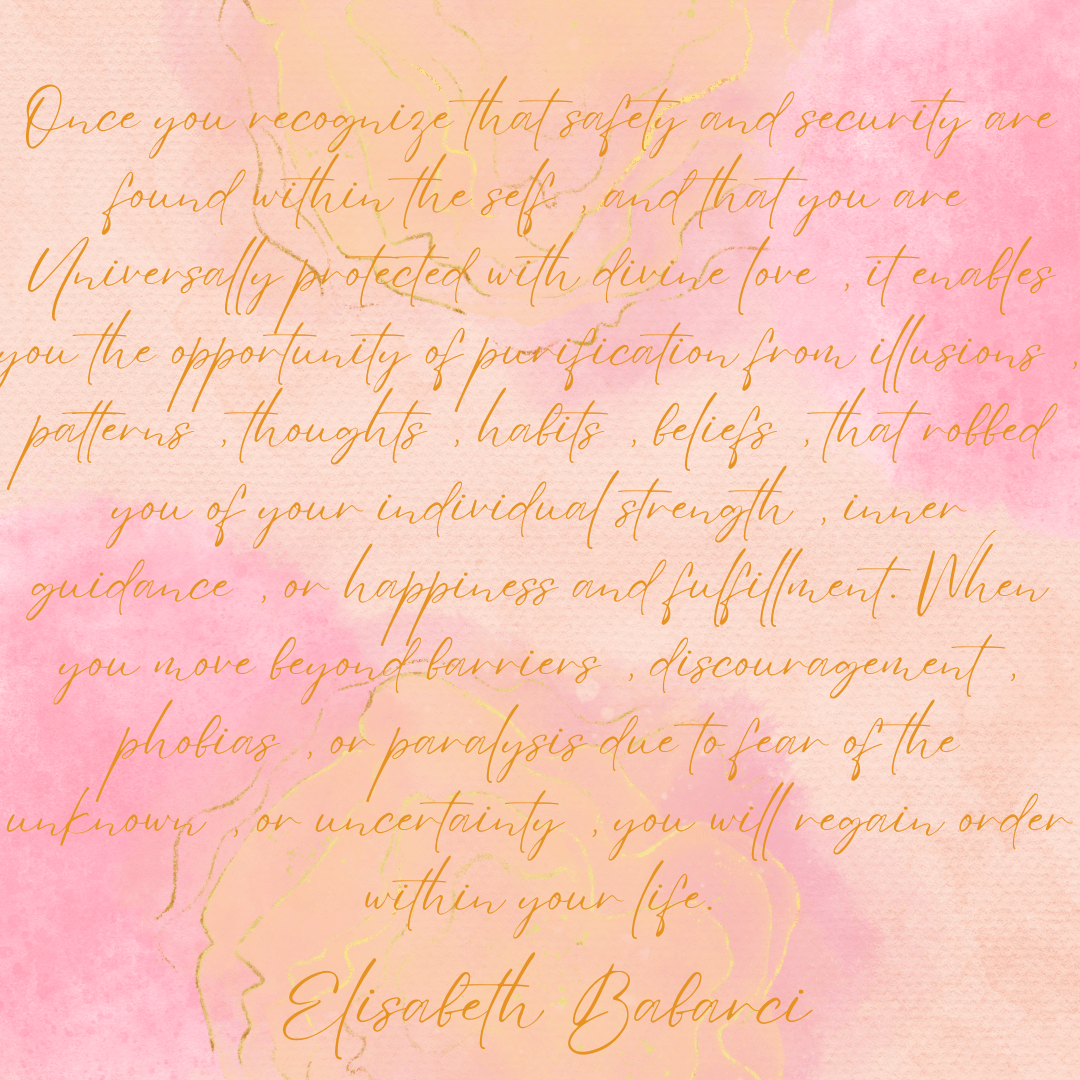 Once you recognize that safety and security are
found within the self , and that you are
Universally protected with divine love , it enables
you the opportunity of purification from illusions ,
patterns , thoughts , habits , beliefs , that robbed
you of your individual strength , inner
guidance , or happiness and fulfillment. When
you move beyond barriers , discouragement ,
phobias , or paralysis due to fear of the
unknown , or uncertainty , you will regain order
within your life.
Elisabeth Babarci